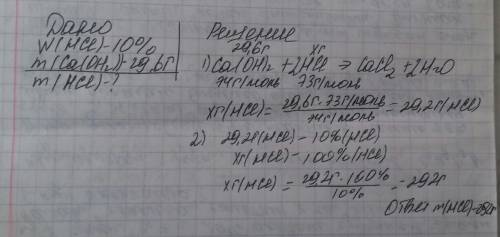 Дано
W(HCl)-10%
m(Ca(OH)2)=29,6г
m(HCl)-?
Решение
29,6г xг
1) Ca(OH)2 + 2HCl => CaCl2 + 2H2O
74г/моль 73г/моль
xг(HCl) = 29,6г · 73г/моль / 74г/моль = 29,2г(HCl)
2) 29,2г(HCl) - 10%(HCl)
xг(HCl) - 100%(HCl)
xг(HCl) = 29,2г · 100% / 10% = 292г
Ответ m(HCl)-292г